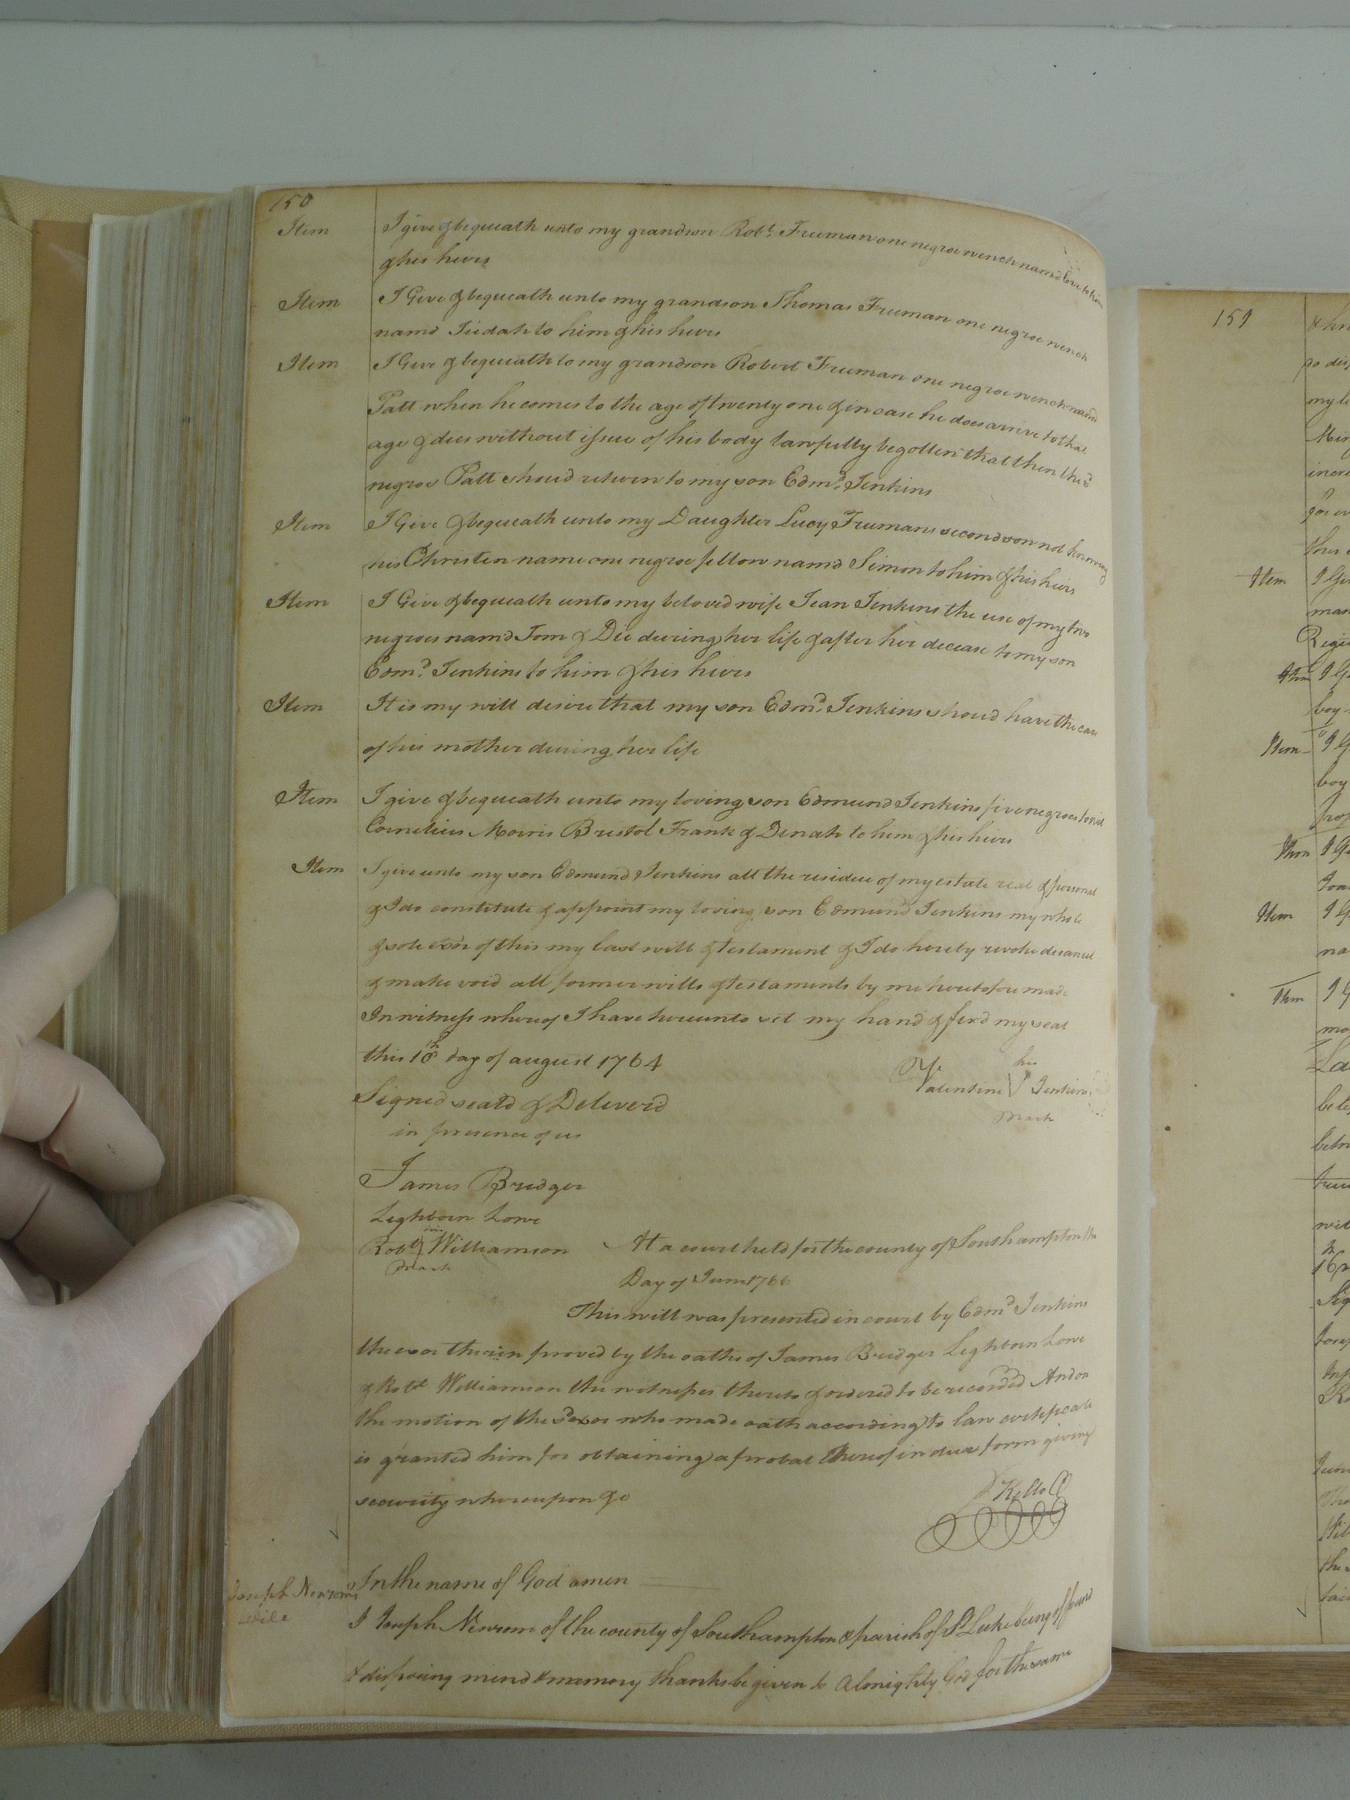 150
Item I give & bequeath unto my grandson Robt. Freeman one negroe wench named to him
& his heirs
Item I Give & bequeath unto my grandson Thomas Freeman one negroe wench
namd to him & his heirs
Item I Give & bequeath to my grandson Robert Freeman one negroe wench named
Patt when he comes to the age of twenty one & in case he does arrive to that
age & dies without issue of his body lawfully begotten that then the sd
negroe Patt should return to my son Edmd. Jenkins
Item I Give & bequeath unto my Daughter Lucy Freemans second son not knowing
his Christen name one negroe fellow namd Simon to him & his heirs
Item I Give & bequeath unto my beloved wife Jean Jenkins the use of my two
negroes namd Tom & Die during her life & after her decease to my son
Edmd. Jenkins to him & his heirs
Item It is my will desire that my son Edmd. Jenkins shoud have the care
of his mother during her life
Item I give & bequeath unto my loving son Edmund Jenkins five negroes
Cornelius Morris Bristol Frank & Dinah to him & his heirs
Item I give unto my son Edmund Jenkins all the residue of my estate real & personal
& I do constitute & appoint my loving son Edmund Jenkins my whole
& sole exor of this my last will & testament & I do hereby revoke disanul
& make void all former wills & testaments by me heretofore made
In witness whereof I have hereunto set my hand & fixd my seal
this 18th day of august 1764
his
Valentine V Jenkins
mark
Signed seald & Deliverd
in presence of us
James Bridger
Lighborn Lowe
his
Robt Williamson
mark
At a court held for the county of Southampton the
Day of June 1766
This will was presented in court by Edmd Jenkins
the exor therein proved by the oaths of James Bridger Lighborn Lowe
& Robt Williamson the witnesses thereto & ordered to be recorded And on
the motion of the sd exor who made oath according to law certificate
is granted him for obtaining a probat thereof in due form giving
security whereupon &c
Kello C
Joseph Newsom's
will
In the name of God amen
I Joseph Newsom of the county of Southampton & parish of St Luke being of sound
& disposing mind & memory thanks be given to Almighty God for the same
151
Item
Item
Item
Item
Item
Item